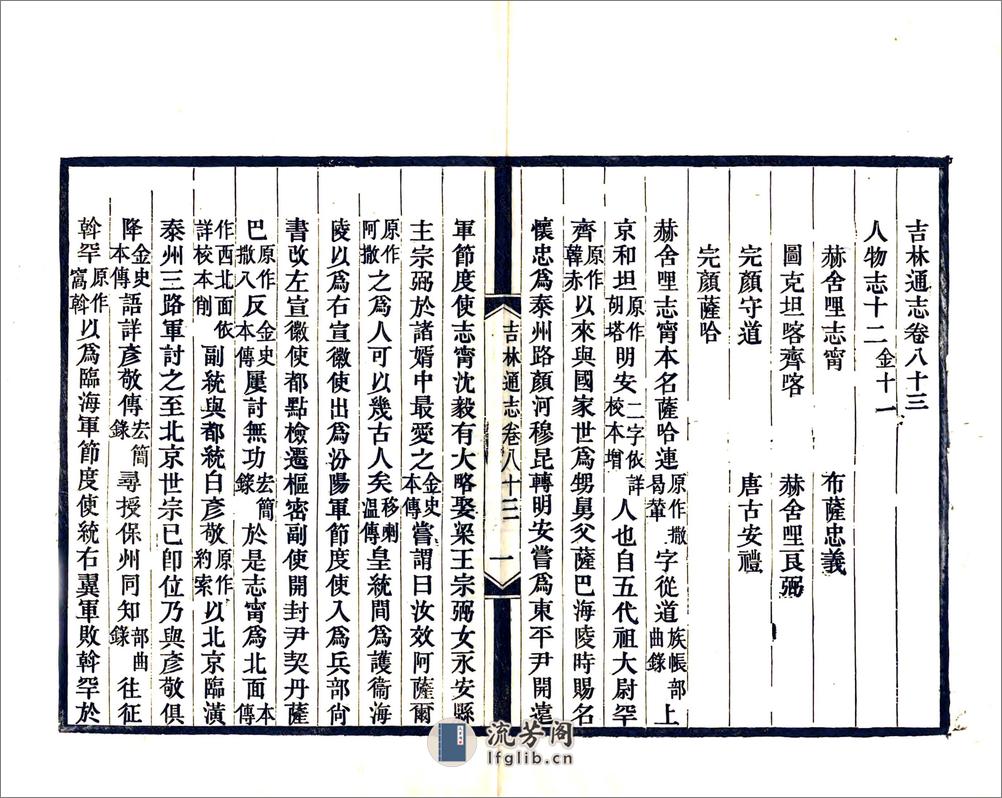 吉林通志卷八十三
人物志十二 金十一
赫舍哩志甯 布薩忠義
圖克坦喀齊喀 赫舍哩良弼
完顏守道 唐古安禮
完顏薩哈
赫舍哩志甯本名薩哈連 原作撒曷輦 字從道 族帳部曲錄 上
京和坦 原作胡塔 明安 二字依校本增 詳 人也自五代祖大尉罕
齊 原作韓赤 以來與國家世爲甥舅父薩巴海陵時賜名
懷忠爲泰州路顏河穆昆轉明安嘗爲東平尹開遠
軍節度使志甯沈毅有大略娶梁王宗弼女永安縣
主宗弼於諸婿中最愛之 金史本傳 嘗謂曰汝效阿薩爾
原作阿撒 之爲人可以幾古人矣 移剌溫傳 皇統間爲護衞海
陵以爲右宣徽使出爲汾陽軍節度使入爲兵部尚
書改左宣徽使都點檢遷樞密副使開封尹契丹薩
巴 原作撒八 反 金史本傳 屢討無功 宏簡錄 於是志甯爲北面 本傳
作西北面依詳校本削 副統與都統白彥敬 原作約索 以北京臨潢
泰州三路軍討之至北京世宗已卽位乃與彥敬俱
降 金史本傳 語詳彥敬傳 宏簡錄 尋授保州同知 部曲錄 往征
斡罕 原作窩斡 以爲臨海軍節度使統右翼軍敗斡罕於
吉林通志 卷八十三 一
流芳阁
lfglib.cn